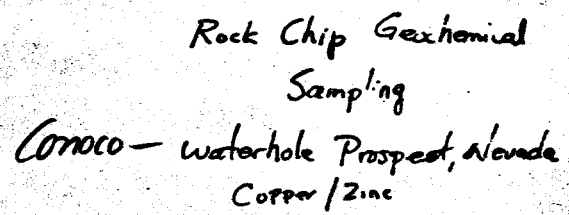 Rock Chip Geochemical
Sampling
Conoco — Waterhole Prospect, Nevada
Copper / Zinc